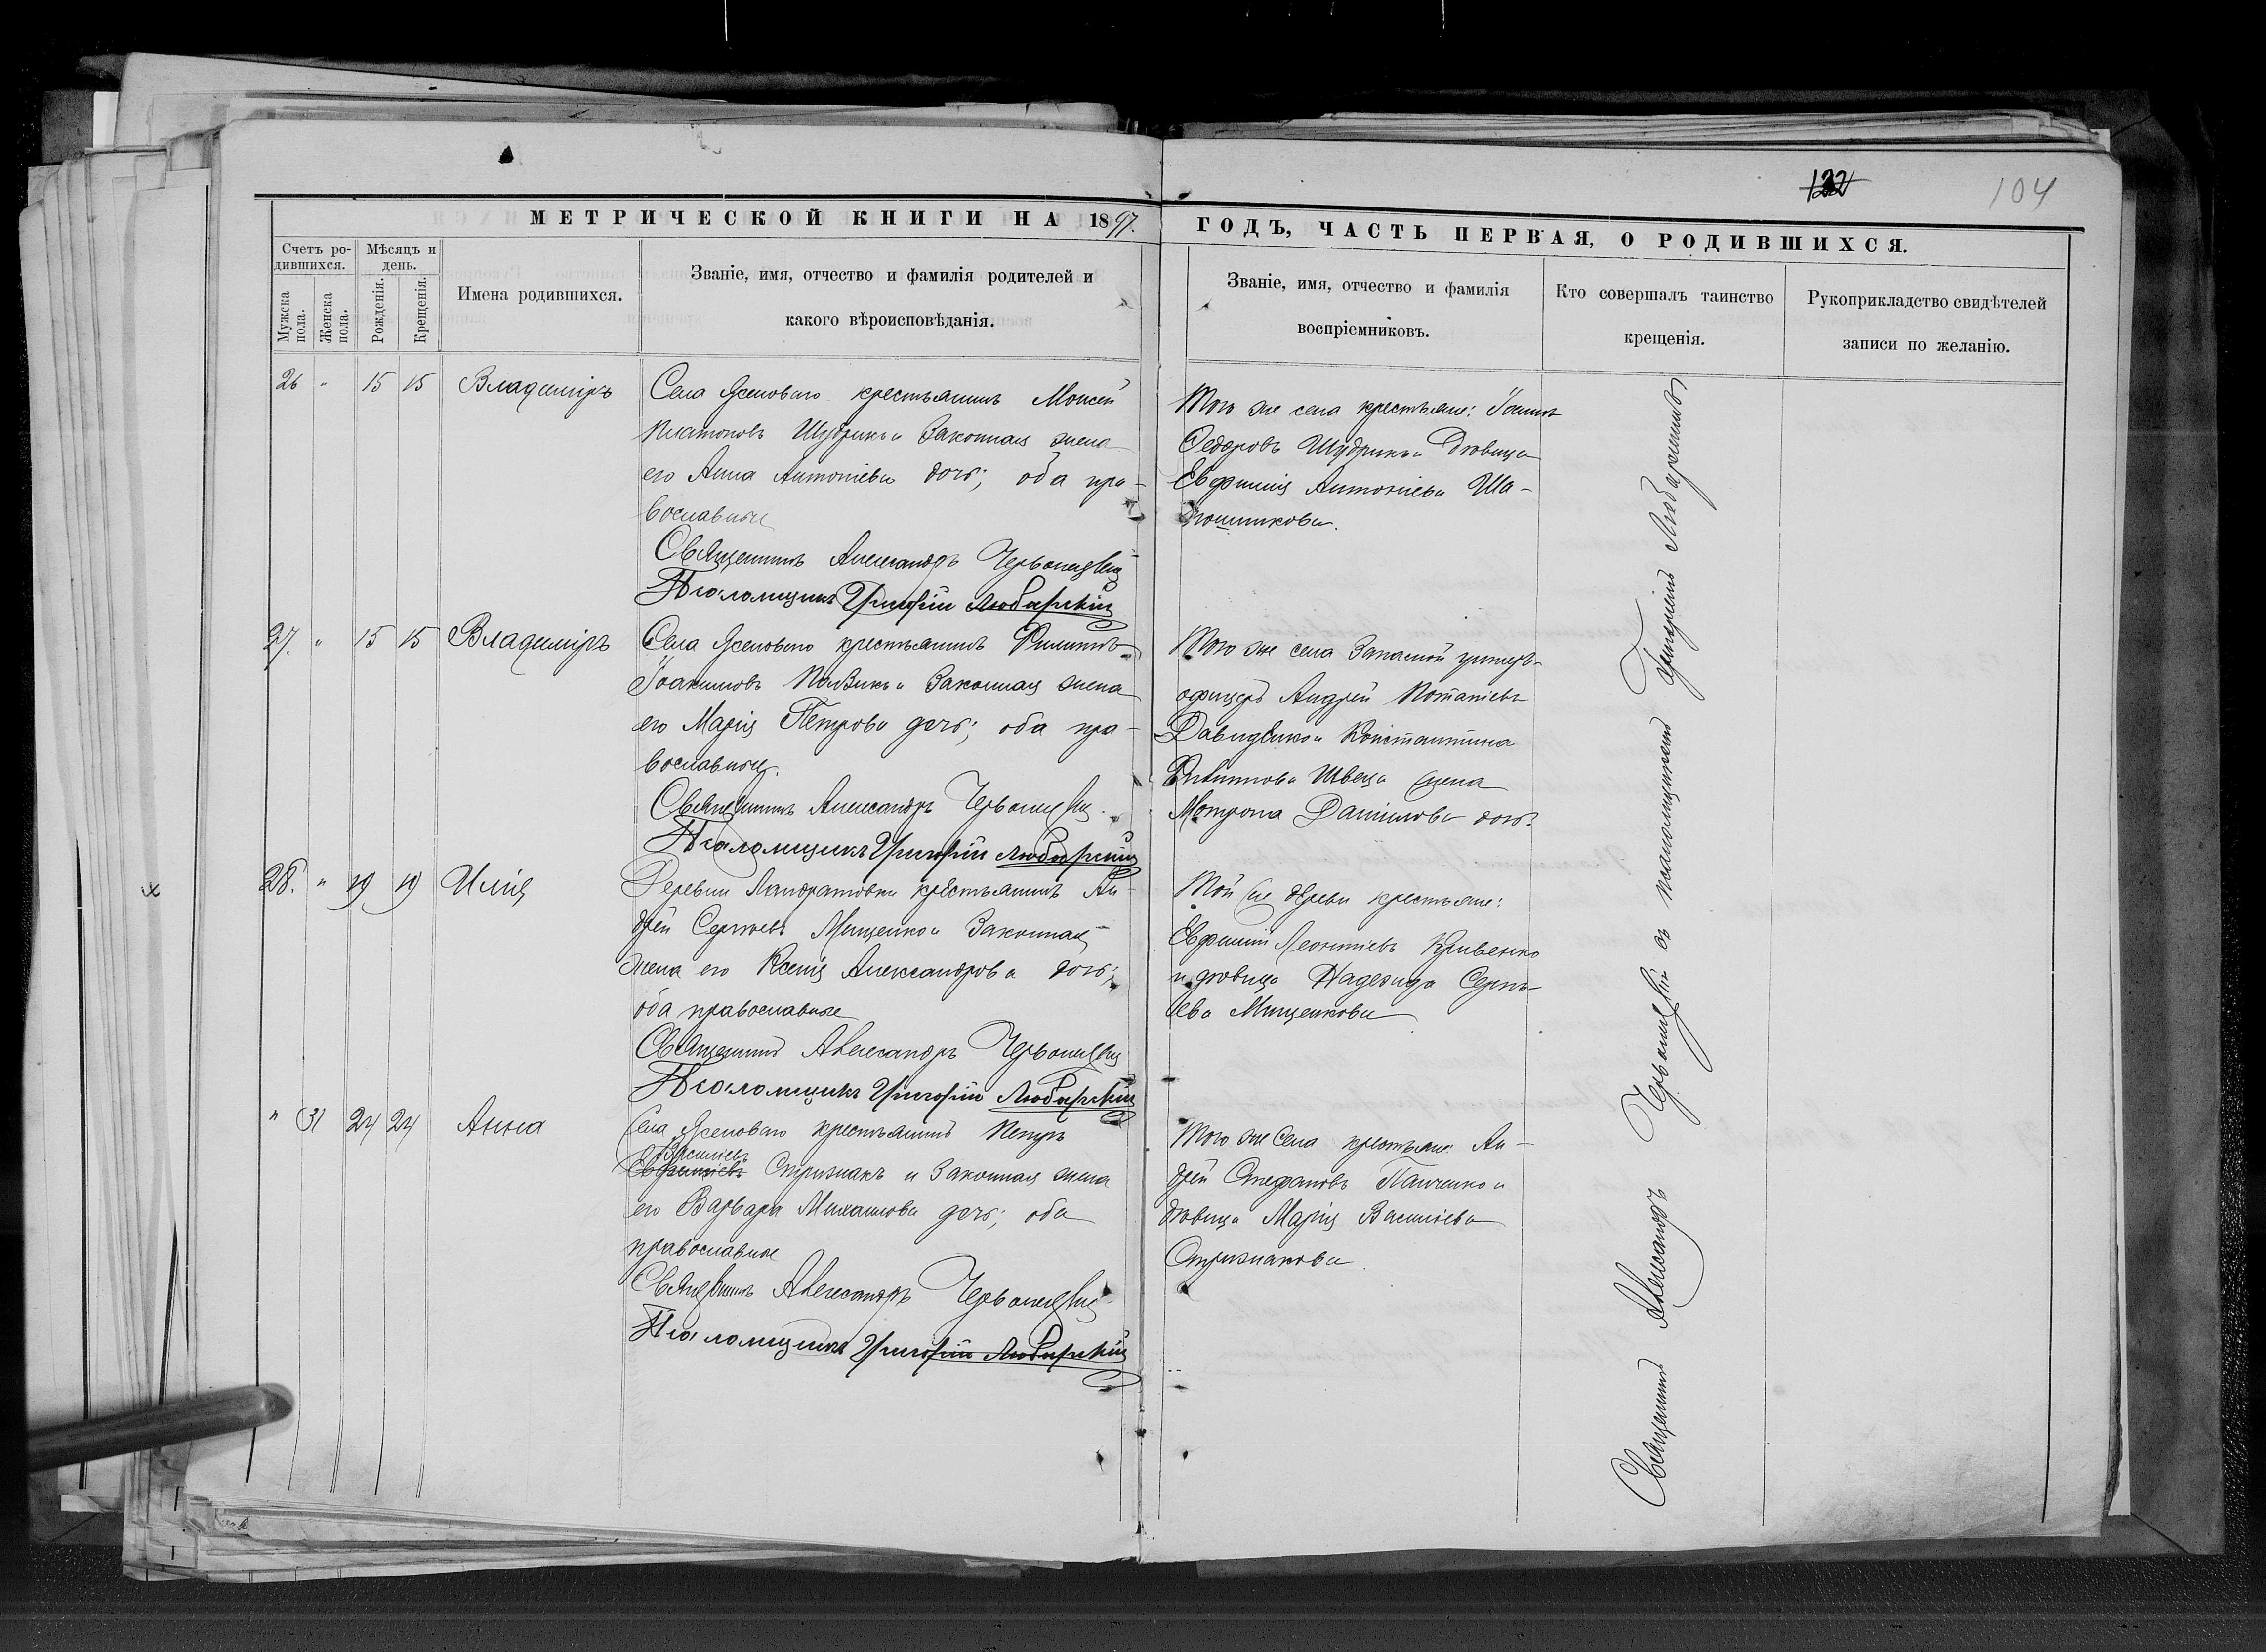 122
104
МЕТРИЧЕСКОЙ КНИГИ НА 1897.
ГОДЪ, ЧАСТЬ ПЕРВАЯ, О РОДИВШИХСЯ.
Счетъ ро-
дившихся.
Мужска
пола.
Женска
пола.
Мѣсяцъ и
день.
Рожденія.
Крещенія.
Имена родившихся.
Званіе, имя, отчество и фамилія родителей и
какого вѣроисповѣданія.
Званіе, имя, отчество и фамилія
воспріемниковъ.
Кто совершалъ таинство
крещенія.
Рукоприкладство свидѣтелей
записи по желанію.
26 " 15 15 Владиміръ
Села Ясеноваго крестьянинъ Моисей
Платоновъ Шудрикъ и законная жена
его Анна Антоніева дочь; оба пра-
вославные
Священникъ Александръ
Псаломщикъ Григорій Любарскій
Того же села крестьяне: Іоаннъ
Федоровъ Шудрикъ и дѣвица
Евфимія Антоніева Ша-
27. " 15 15 Владиміръ
Села Ясеноваго крестьянинъ Филиппъ
Іоакимовъ и законная жена
его Марія Петрова дочь; оба пра-
вославные.
Священникъ Александръ
Псаломщикъ Григорій Любарскій
Того же села запасной унтеръ-
офицеръ Андрей Потапіевъ
и Константина
Филиппова Швеца жена
Мотрона Даніилова дочь.
28. " 19 19 Илія
Деревни Ландратовки крестьянинъ Ан-
дрей Сергіевъ Мищенко и законная
жена его Ксенія Александрова дочь;
оба православные
Священникъ Александръ
Псаломщикъ Григорій Любарскій
Той же деревни крестьяне:
Евфимій Леонтіевъ Кривенко
и дѣвица Надежда Сергі-
ева Мищенкова
" 31 24 24 Анна
Села Ясеноваго крестьянинъ Петръ
Василіевъ
Стрижакъ и законная жена
его Варвара Михаилова дочь; оба
православные
Священникъ Александръ
Псаломщикъ Григорій Любарскій
Того же села крестьяне: Ан-
дрей Стефановъ Панченко и
дѣвица Марія Василіева
Стрижакова.
Священникъ Александръ съ псаломщикомъ Григоріемъ Любарскимъ